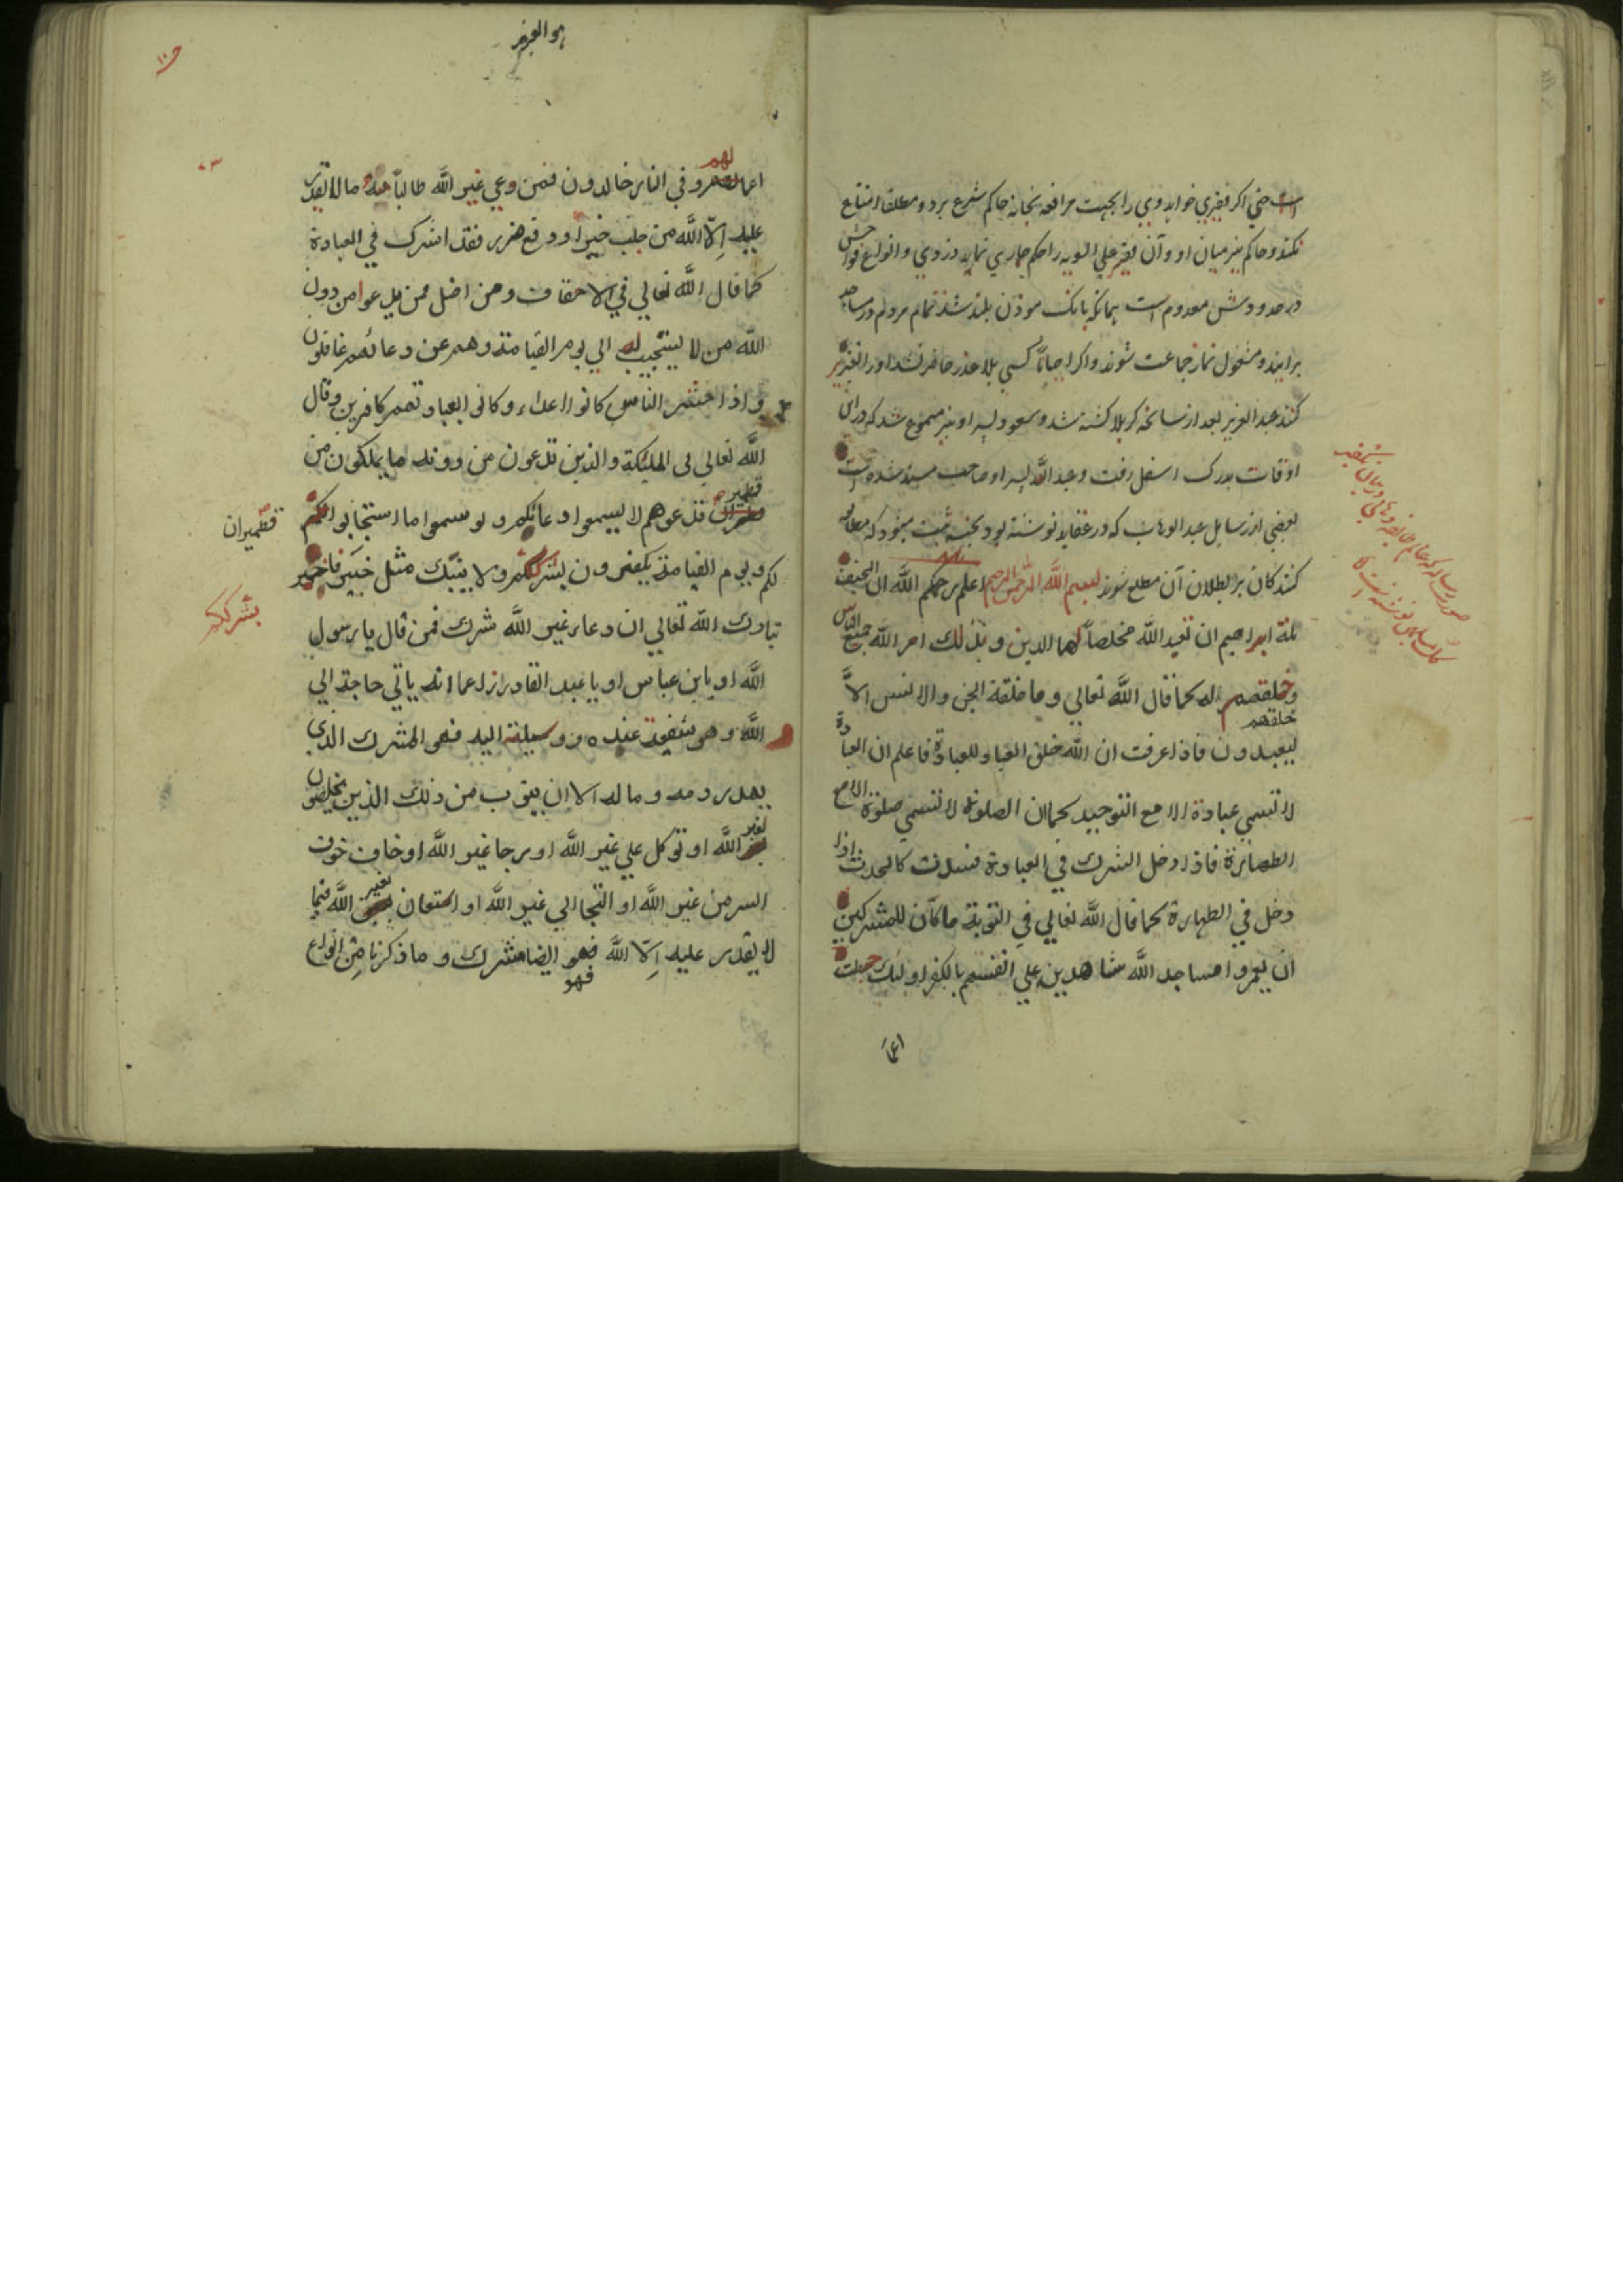 است حتي اكر فقيري خواهد وي را بجهت مرافعه بخانه حاكم شرع برد و مطلقا امتناع
نكند و حاكم نيز ميان او و آن فقير علي السويه را حكم جاري نمايد دزدي و انواع فواحش
در حدودش معدوم است همانكه بانك موذن بلند شد تمام مردم در مساجد
برايند و مشغول نماز جماعت شوند و اكر احياناً كسي بلا عذر حاضر نشد او را تعزير
كنند عبد العزيز بعد از سانحه كربلا كشته شد و سعود پسر او نيز مسموع شد كه در اين
اوقات بدرك اسفل رفت و عبد الله پسر او صاحب مسند شده است
بعضي از رسايل عبد الوهاب كه در عقايد نوشته بود بجنسه ثبت ميشود كه مطالعه
كنندكان بر بطلان آن مطلع شوند بسم الله الرحمن الرحيم اعلم رحمكم الله ان الحنيفة
ملة ابراهيم ان تعبد الله مخلصاً لها الدين و بذلك امر الله جميع الناس
وخلقهم له كما قال الله تعالي وما خلقة الجن والانس الاّ
خلقهم
ليعبدون فاذا عرفت ان الله خلق العباد للعبادة فاعلم ان العبادة
لا تسمي عبادة الا مع التوحيد كما ان الصلوة لا تسمي صلوة الا مع
الطهارة فاذا دخل الشرك في العبادة فسدت كالحدث اذا
دخل في الطهارة كما قال الله تعالي في التوبة ما كان للمشركين
ان يعمروا مساجد الله شاهدين علي انفسهم بالكفر اولئك حبطت
هو العزيز
٧٣
لهم
اعمالهم و في النار خالدون فمن دعي غير الله طالباً منه ما لا يقدر
عليه اِلاّ الله من جلب خير او دفع ضرر فقد اشرك في العبادة
كما قال الله تعالي في الاحقاف ومن اضل ممن يدعوا من دون
الله من لا يستجيب له الي يوم القيامة وهم عن دعائهم غافلون
و اذا حشر الناس كانوا اعداء وكانى العبادتهم كافرين وقال
الله تعالي فى المليكة والذين تدعون من دونه ما يملكون من
قطمير ان تدعوهم لا يسمعوا دعائكم ولو سمعوا ما استجابوا لكم
قطميران
لكم ويوم القيامة يكفرون بشرككم ولا ينبّك مثل خبير فاخبر
بشرككم
تبارك الله تعالي ان دعاء غير الله شرك فمن قال يا رسول
الله او يابن عباس او يا عبد القادر زاعما انه ياتي حاجة الي
الله و هو شفيعة عنده و وسيلته اليه فهو المشرك الذي
يهدر دمه و ماله الا ان يتوب من ذلك الذين يخلصون
لغير الله او توكل علي غير الله او رجا غير الله او خاف خوف
السر من غير الله او التجا الي غير الله او استعان بغير الله فيما
لا يقدر عليه اِلاّ الله فهو ايضا مشرك و ما ذكرنا مِن انواع
فهو